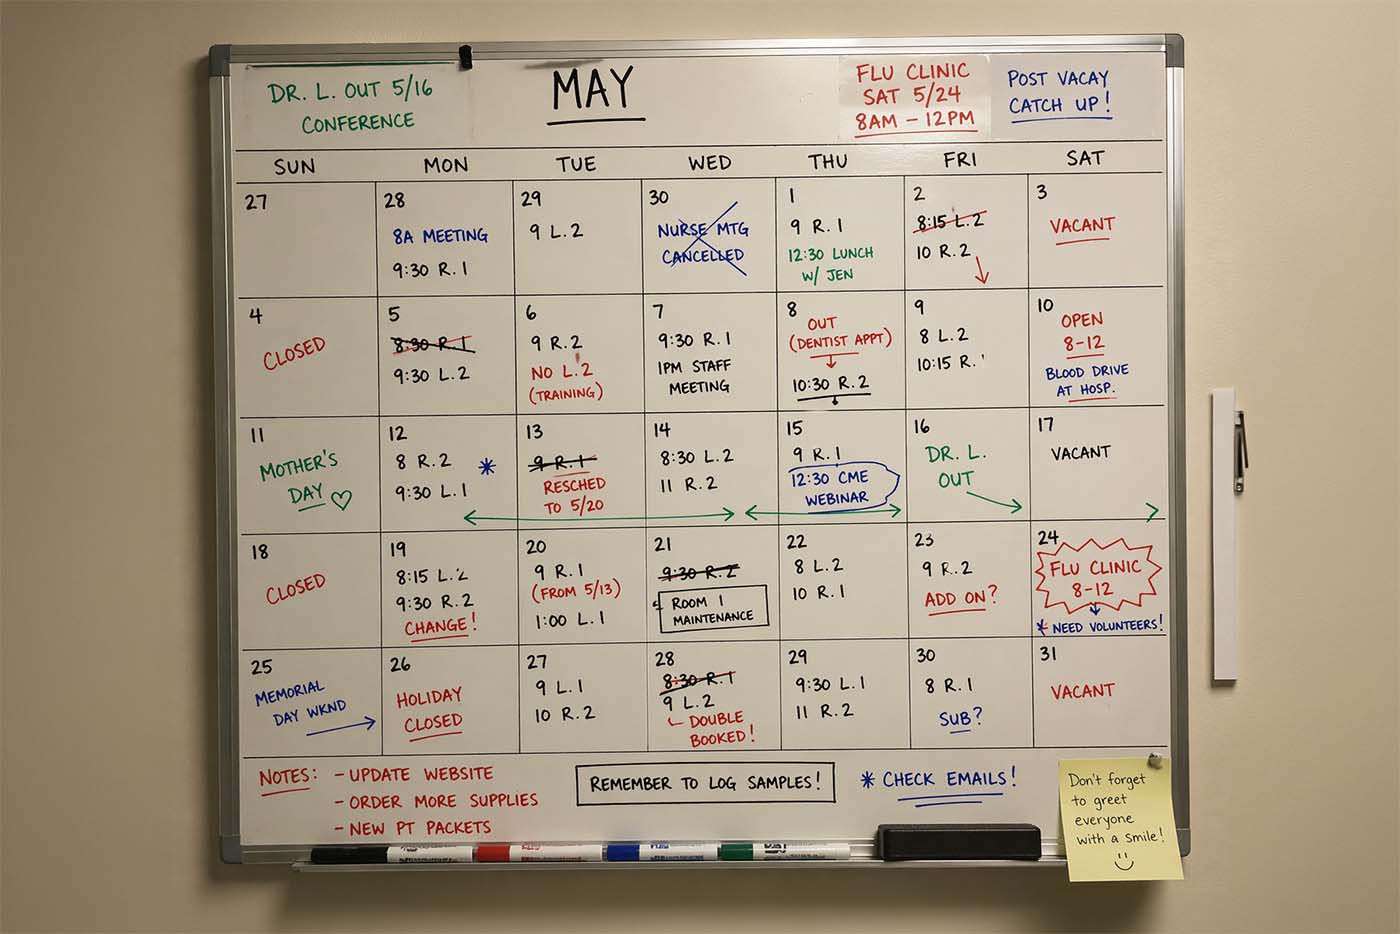 DR. L. OUT 5/16
CONFERENCE
MAY
FLU CLINIC
SAT 5/24
8AM – 12PM
POST VACAY
CATCH UP!
SUN MON TUE WED THU FRI SAT
27
28
8A MEETING
9:30 R.1
29
9 L.2
30
NURSE MTG
CANCELLED
1
9 R.1
12:30 LUNCH
W/ JEN
2
8:15 L.2
10 R.2
3
VACANT
4
CLOSED
5
8:30 R.1
9:30 L.2
6
9 R.2
NO L.2
(TRAINING)
7
9:30 R.1
1PM STAFF
MEETING
8
OUT
(DENTIST APPT)
10:30 R.2
9
8 L.2
10:15 R.
10
OPEN
8-12
BLOOD DRIVE
AT HOSP.
11
MOTHER'S
DAY ♡
12
8 R.2 *
9:30 L.1
13
9 R.1
RESCHED
TO 5/20
14
8:30 L.2
11 R.2
15
9 R.1
12:30 CME
WEBINAR
16
DR. L.
OUT
17
VACANT
18
CLOSED
19
8:15 L.2
9:30 R.2
CHANGE!
20
9 R.1
(FROM 5/13)
1:00 L.1
21
9:30 R.2
ROOM 1
MAINTENANCE
22
8 L.2
10 R.1
23
9 R.2
ADD ON?
24
FLU CLINIC
8-12
* NEED VOLUNTEERS!
25
MEMORIAL
DAY WKND
26
HOLIDAY
CLOSED
27
9 L.1
10 R.2
28
8:30 R.1
9 L.2
DOUBLE
BOOKED!
29
9:30 L.1
11 R.2
30
8 R.1
SUB?
31
VACANT
NOTES: – UPDATE WEBSITE
– ORDER MORE SUPPLIES
– NEW PT PACKETS
REMEMBER TO LOG SAMPLES!
* CHECK EMAILS!
Don't forget
to greet
everyone
with a smile!